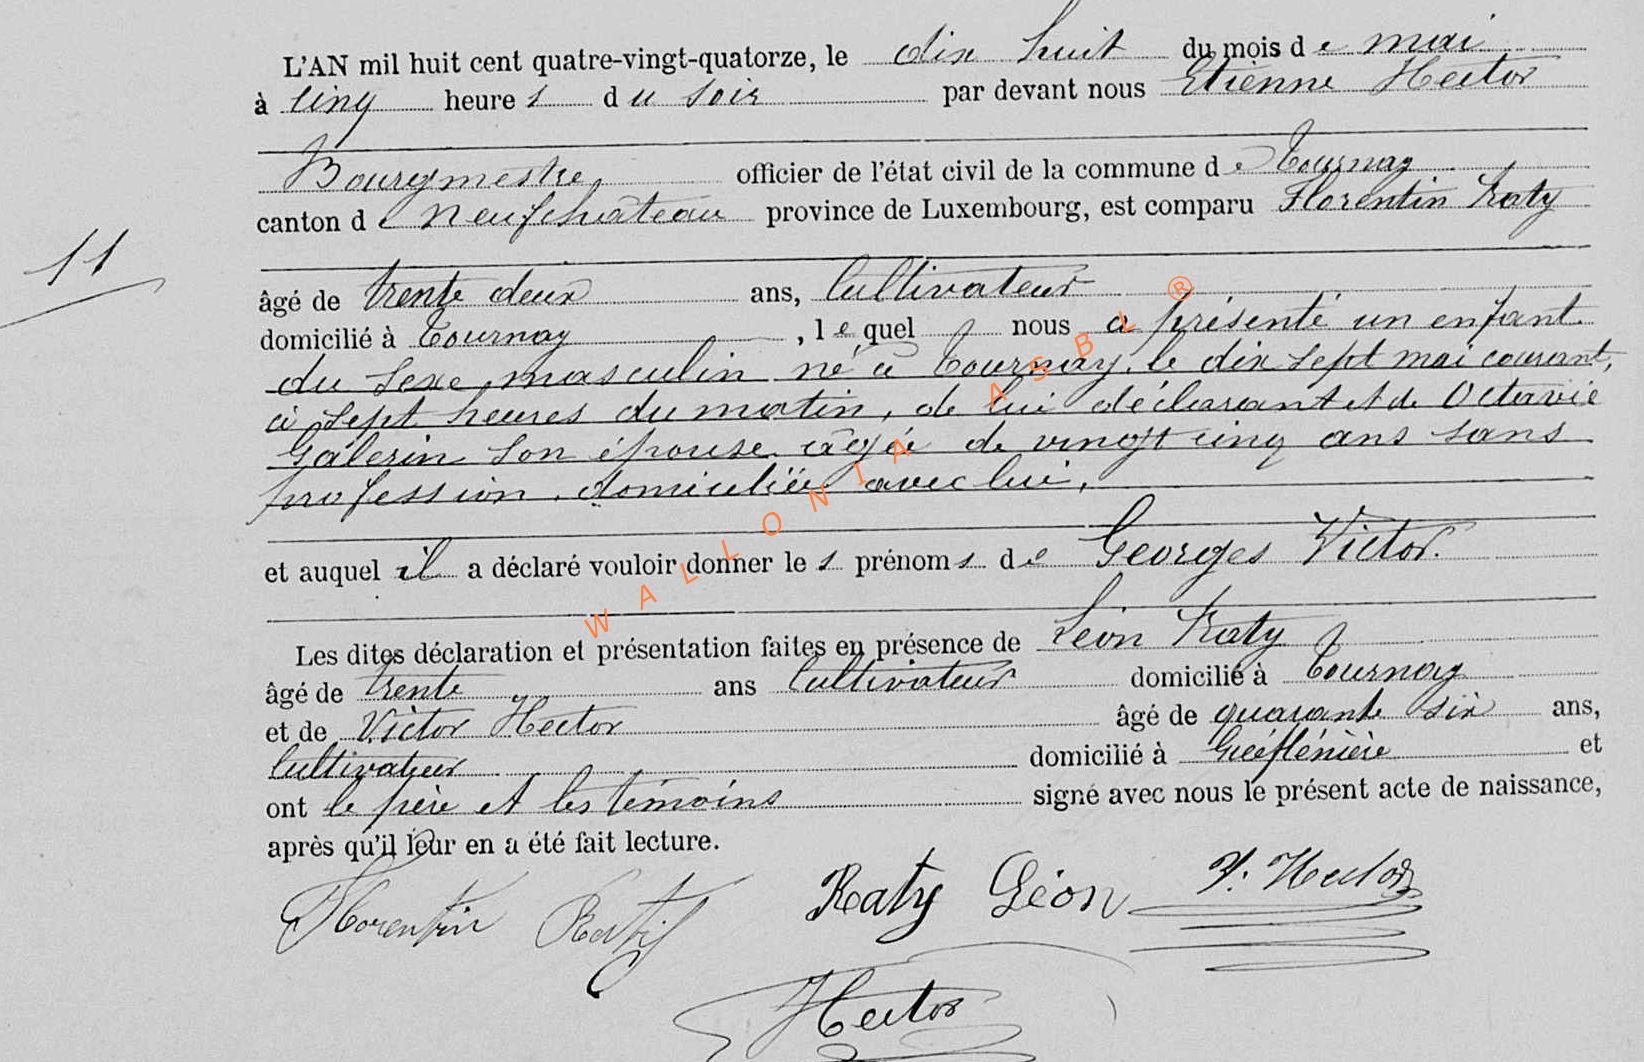 L'AN mil huit cent quatre-vingt-quatorze, le dix huit du mois de mai
à cinq heures du soir par devant nous Etienne Hector
Bourgmestre officier de l'état civil de la commune de Tournay
canton de Neufchâteau province de Luxembourg, est comparu Florentin Raty
11
âgé de trente deux ans, Cultivateur
domicilié à Tournay, lequel nous a présenté un enfant
du sexe masculin né à Tournay, le dix sept mai courant,
à sept heures du matin, de lui déclarant et de Octavie
Galerin son épouse âgée de vingt cinq ans sans
profession, domiciliée avec lui,
et auquel il a déclaré vouloir donner les prénoms de Georges Victor.
Les dites déclaration et présentation faites en présence de Léon Raty
âgé de trente ans Cultivateur domicilié à Tournay
et de Victor Hector âgé de quarante six ans,
Cultivateur domicilié à et
ont le père et les témoins signé avec nous le présent acte de naissance,
après qu'il leur en a été fait lecture.
Florentin Raty Raty Léon V. Hector
Hector
WALLONIA ASBL ®